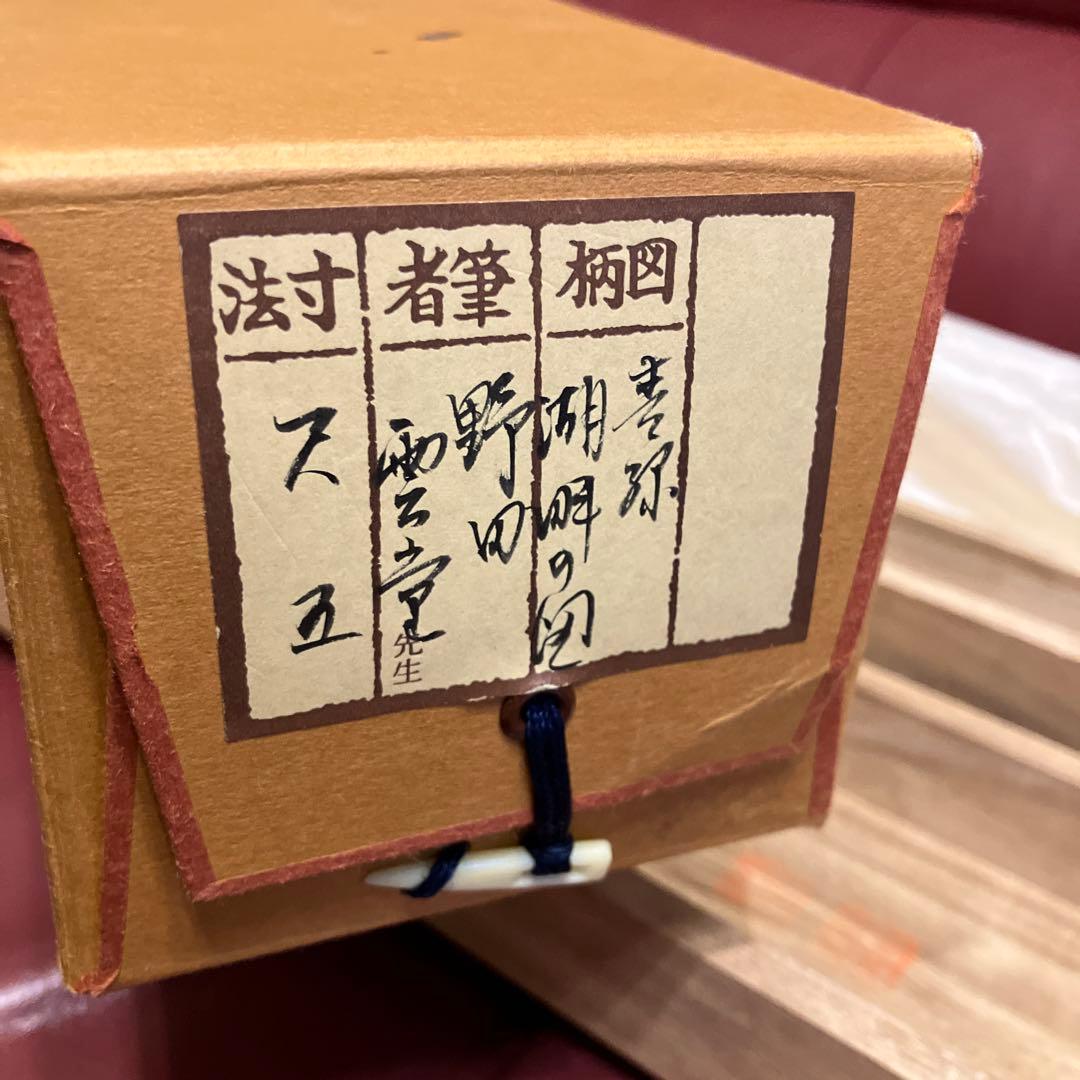 図柄
湖畔の図
筆者
野田
雲堂先生
寸法
尺五